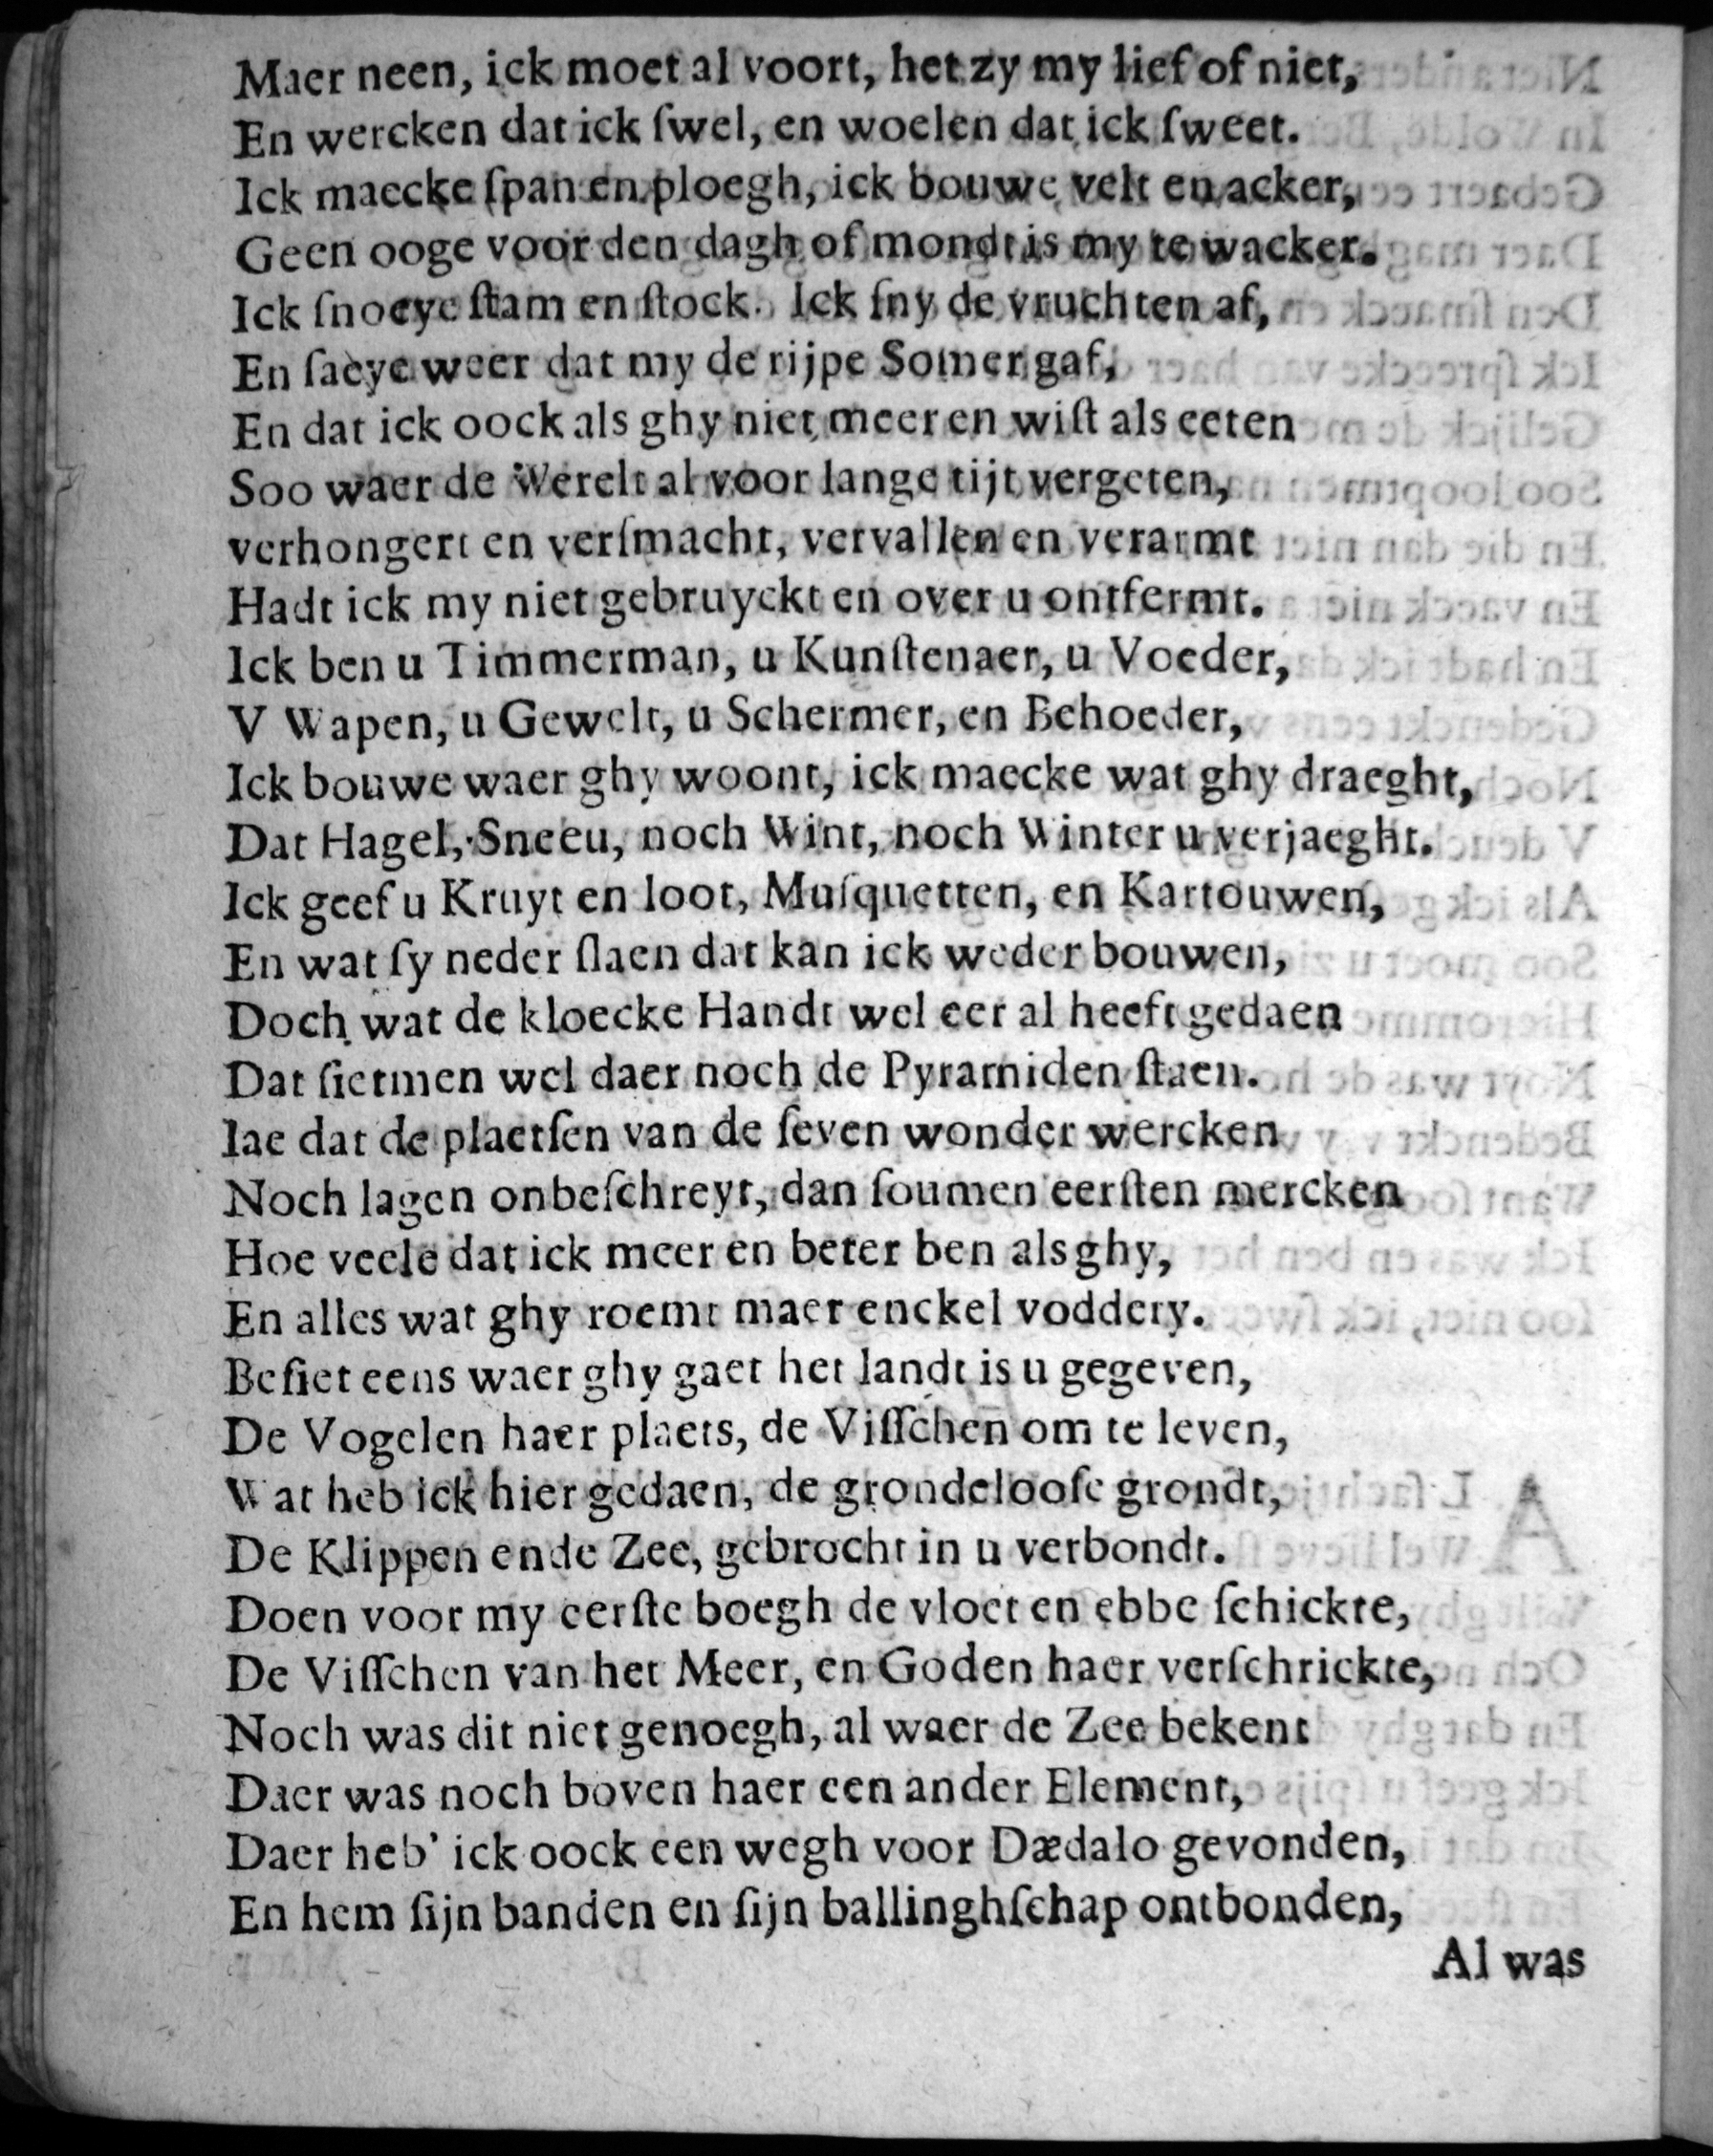 Maer neen, ick moet al voort, het zy my lief of niet,
En wercken dat ick ſwel, en woelen dat ick ſweet.
Ick maecke ſpan en ploegh, ick bouwe velt en acker,
Geen ooge voor den dagh of mondt is my te wacker.
Ick ſnoeye ſtam en ſtock. Ick ſny de vruchten af,
En ſaeye weer dat my de rijpe Somer gaf,
En dat ick oock als ghy niet meer en wiſt als eeten
Soo waer de Werelt al voor lange tijt vergeten,
verhongert en verſmacht, vervallen en verarmt
Hadt ick my niet gebruyckt en over u ontfermt.
Ick ben u Timmerman, u Kunſtenaer, u Voeder,
V Wapen, u Gewelt, u Schermer, en Behoeder,
Ick bouwe waer ghy woont, ick maecke wat ghy draeght,
Dat Hagel, Sneeu, noch Wint, noch Winter u verjaeght.
Ick geef u Kruyt en loot, Muſquetten, en Kartouwen,
En wat ſy neder ſlaen dat kan ick weder bouwen,
Doch wat de kloecke Handt wel eer al heeft gedaen
Dat ſietmen wel daer noch de Pyramiden ſtaen.
Iae dat de plaetſen van de ſeven wonder wercken
Noch lagen onbeſchreyt, dan ſoumen eerſten mercken
Hoe veele dat ick meer en beter ben als ghy,
En alles wat ghy roemt maer enckel voddery.
Beſiet eens waer ghy gaet het landt is u gegeven,
De Vogelen haer plaets, de Viſſchen om te leven,
Wat heb ick hier gedaen, de grondelooſe grondt,
De Klippen ende Zee, gebrocht in u verbondt.
Doen voor my eerſte boegh de vloet en ebbe ſchickte,
De Viſſchen van het Meer, en Goden haer verſchrickte,
Noch was dit niet genoegh, al waer de Zee bekent
Daer was noch boven haer een ander Element,
Daer heb' ick oock een wegh voor Dædalo gevonden,
En hem ſijn banden en ſijn ballinghſchap ontbonden,
Al was